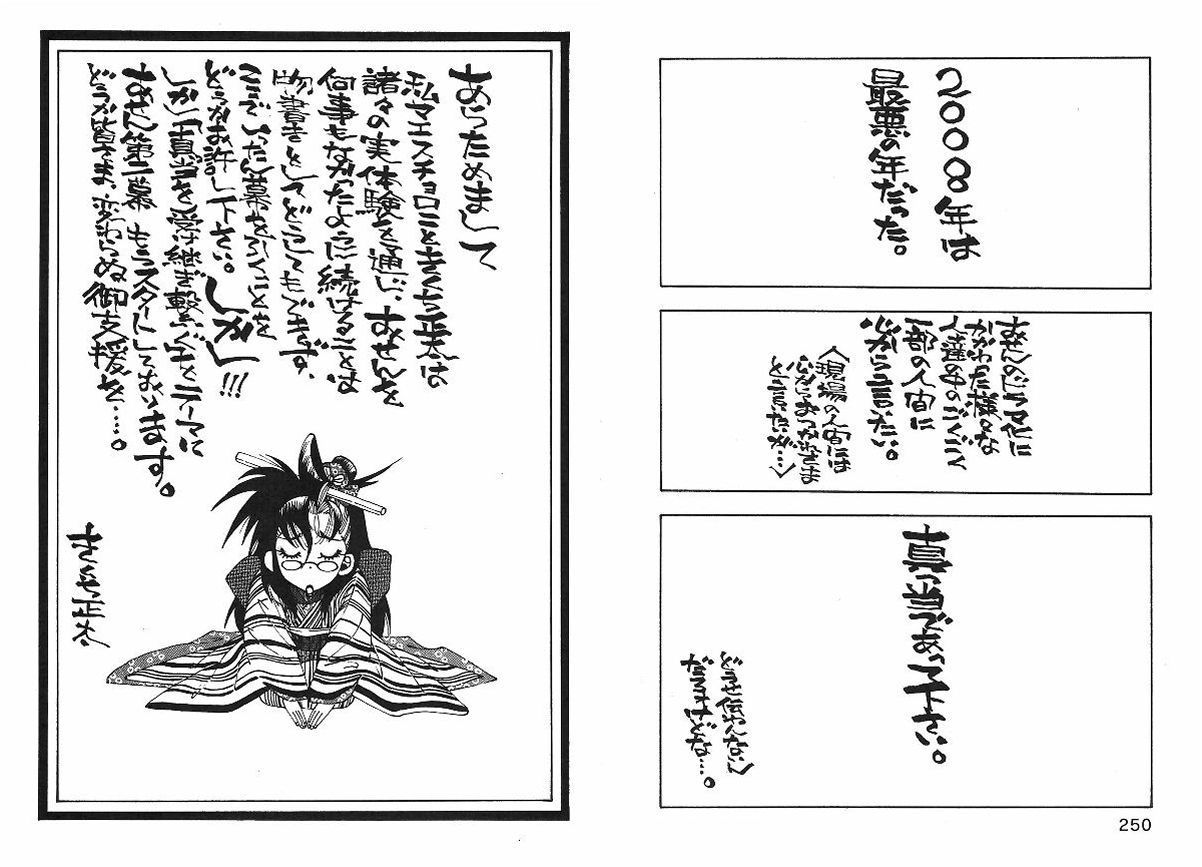 2008年は
最悪の年だった。
おせんのドラマ化に
かかわった様々な
人達の中のごくごく
一部の人間に
心から言いたい。
(現場の人間には
心からおつかれさま
と言いたいが…)
真っ当であって下さい。
どうせ伝わんない
だろうけどな…。
250
あらためまして
私マエストロこときくち正太は
諸々の実体験を通じ、おせんを
何事もなかったように続けることは
物書きとしてどうしてもできず、
ここでいったん幕を引くことを
どうかお許し下さい。しかし!!!
しかし「真当を受け継ぎ繋ぐ」をテーマに
おせん第二幕 もうスタートしております。
どうか皆さま、変わらぬ御支援を……。
きくち正太